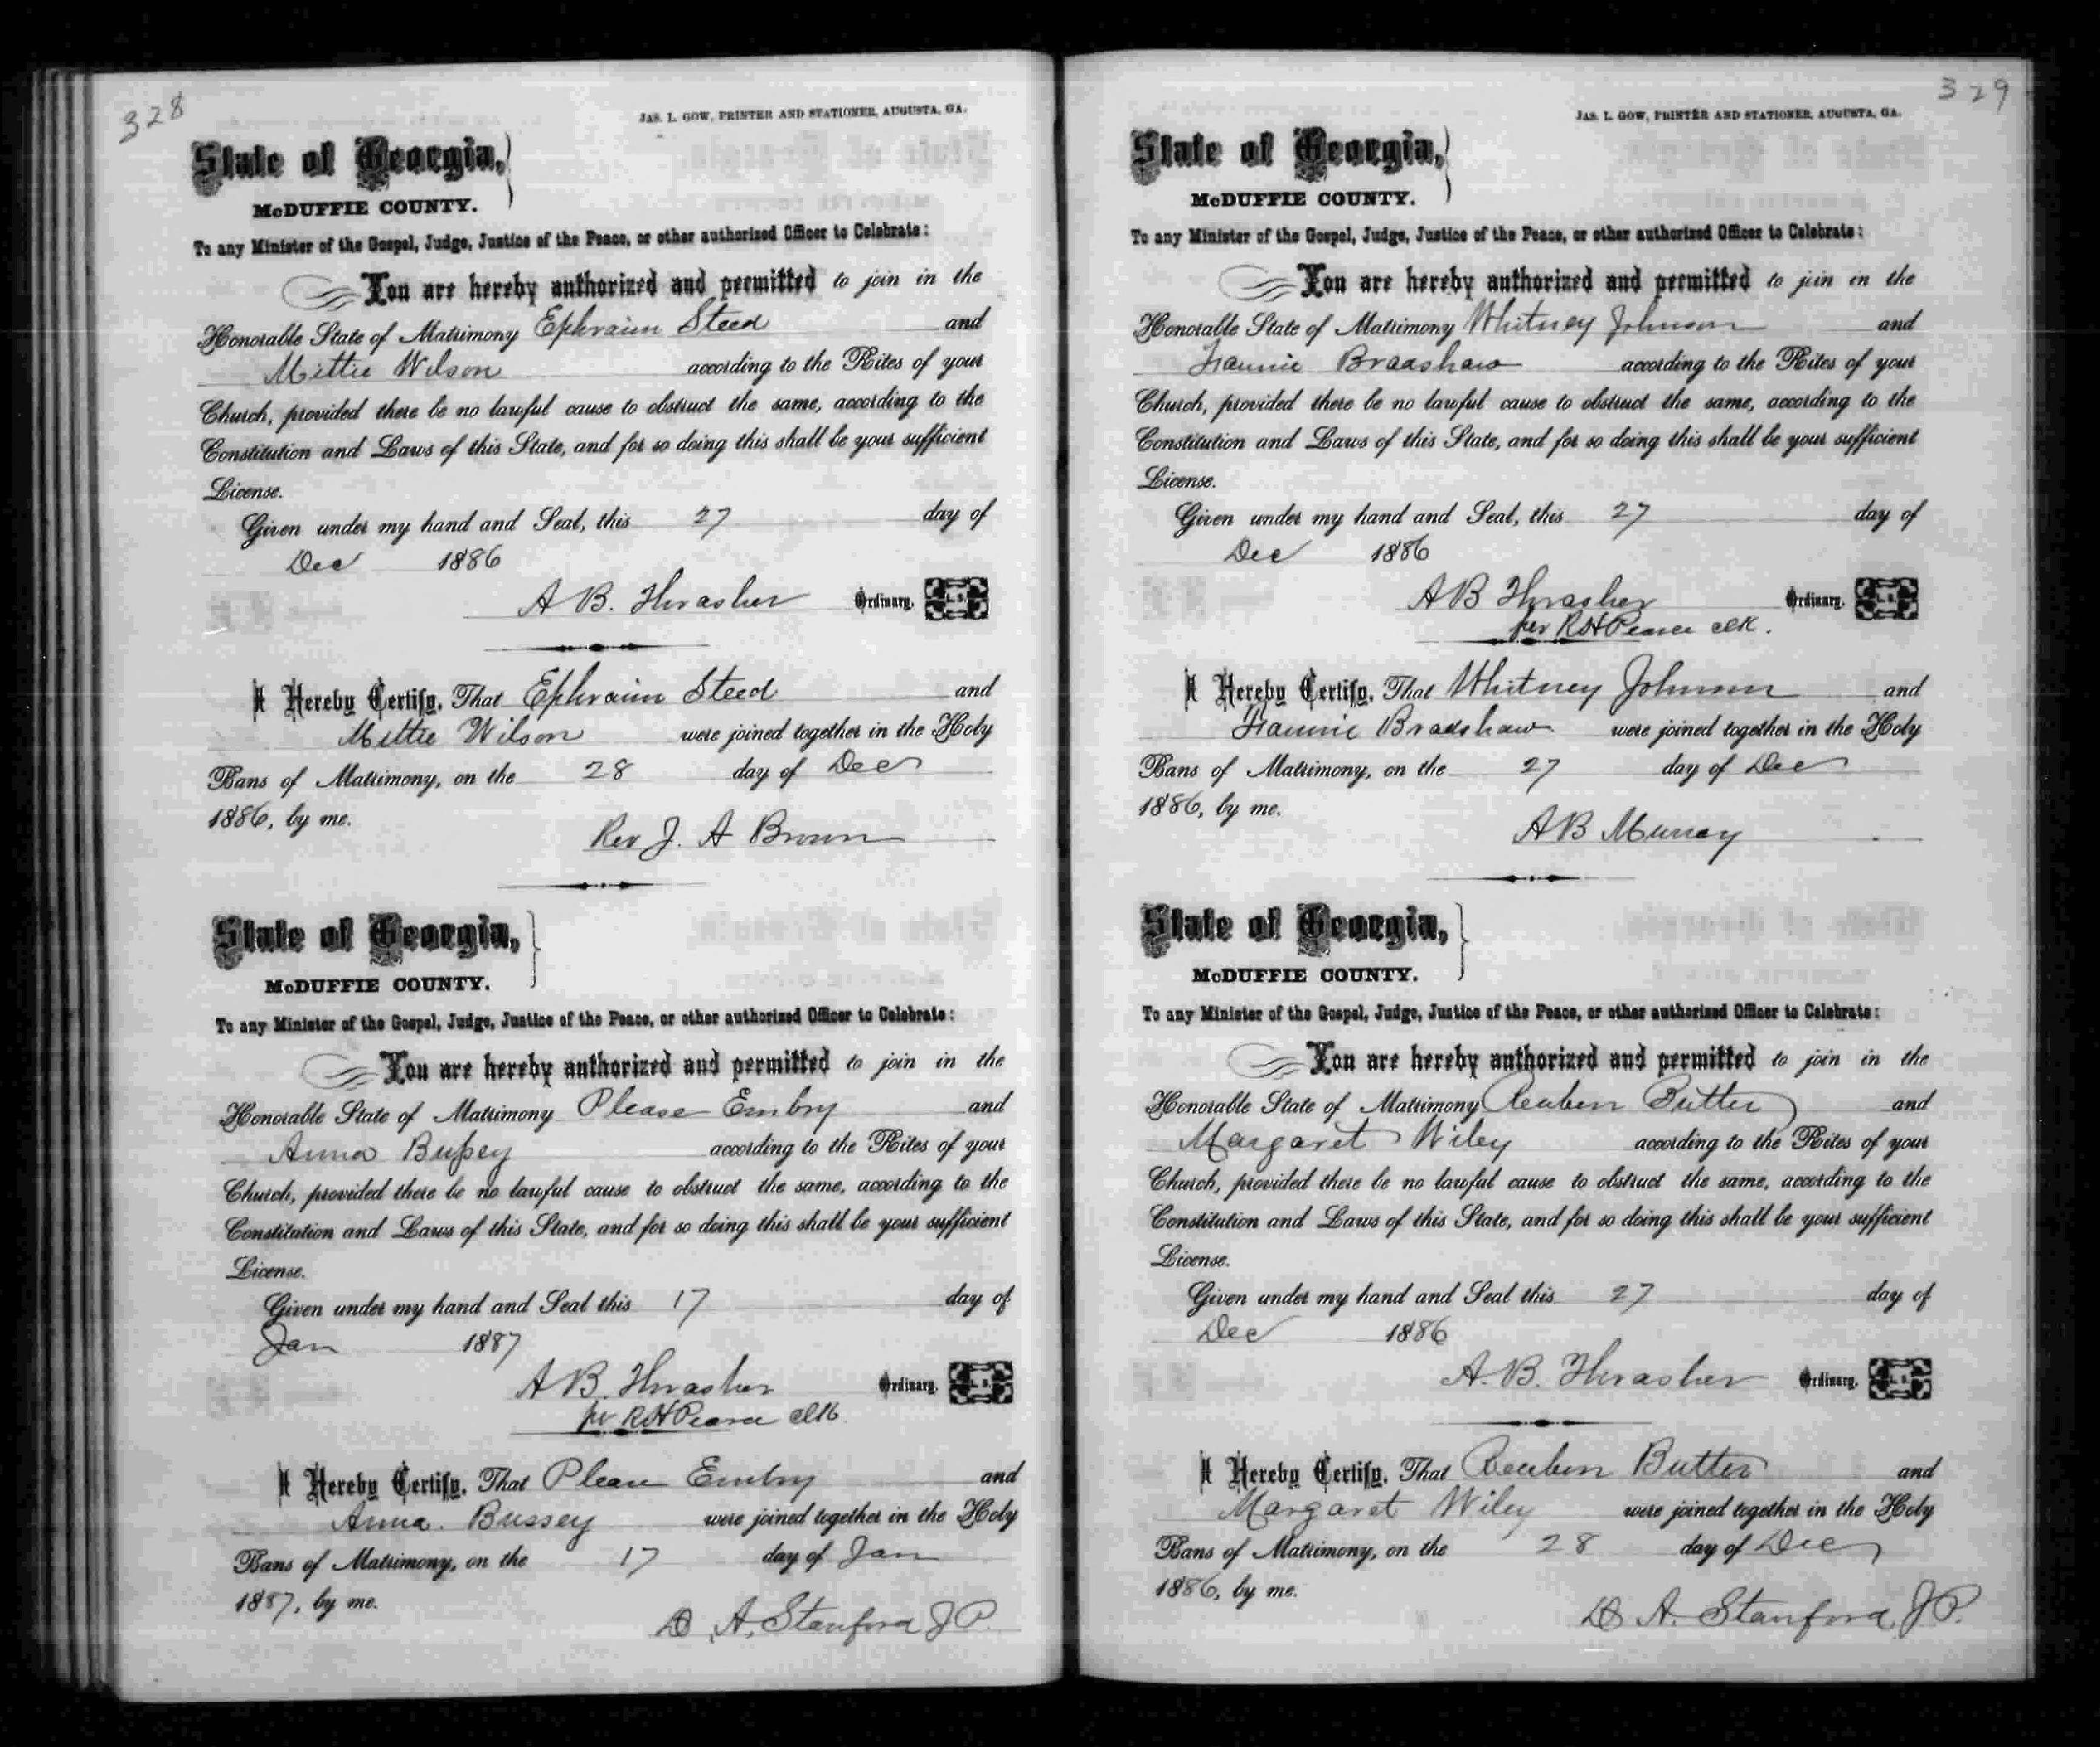 328
JAS. L. GOW, PRINTER AND STATIONER, AUGUSTA, GA.
State of Georgia,
McDUFFIE COUNTY.
To any Minister of the Gospel, Judge, Justice of the Peace, or other authorized Officer to Celebrate:
You are hereby authorized and permitted to join in the
Honorable State of Matrimony Ephraim Steed and
Mittie Wilson according to the Rites of your
Church, provided there be no lawful cause to obstruct the same, according to the
Constitution and Laws of this State, and for so doing this shall be your sufficient
License.
Given under my hand and Seal, this 27 day of
Dec 1886
A B. Thrasher Ordinary. L. S.
I Hereby Certify, That Ephraim Steed and
Mittie Wilson were joined together in the Holy
Bans of Matrimony, on the 28 day of Dec
1886, by me.
Rev J. A Brown
State of Georgia,
McDUFFIE COUNTY.
To any Minister of the Gospel, Judge, Justice of the Peace, or other authorized Officer to Celebrate:
You are hereby authorized and permitted to join in the
Honorable State of Matrimony Please Embry and
Anna Bussey according to the Rites of your
Church, provided there be no lawful cause to obstruct the same, according to the
Constitution and Laws of this State, and for so doing this shall be your sufficient
License.
Given under my hand and Seal this 17 day of
Jan 1887
A B. Thrasher Ordinary. L. S.
per RH Pearce clk
I Hereby Certify, That Please Embry and
Anna. Bussey were joined together in the Holy
Bans of Matrimony, on the 17 day of Jan
1887, by me.
D. A. Stanford J P.
329
JAS. L. GOW, PRINTER AND STATIONER, AUGUSTA, GA.
State of Georgia,
McDUFFIE COUNTY.
To any Minister of the Gospel, Judge, Justice of the Peace, or other authorized Officer to Celebrate:
You are hereby authorized and permitted to join in the
Honorable State of Matrimony Whitney Johnson and
Fannie Bradshaw according to the Rites of your
Church, provided there be no lawful cause to obstruct the same, according to the
Constitution and Laws of this State, and for so doing this shall be your sufficient
License.
Given under my hand and Seal, this 27 day of
Dec 1886
A B Thrasher Ordinary. L. S.
per RH Pearce clk.
I Hereby Certify, That Whitney Johnson and
Fannie Bradshaw were joined together in the Holy
Bans of Matrimony, on the 27 day of Dec
1886, by me.
A B Murray
State of Georgia,
McDUFFIE COUNTY.
To any Minister of the Gospel, Judge, Justice of the Peace, or other authorized Officer to Celebrate:
You are hereby authorized and permitted to join in the
Honorable State of Matrimony Reuben Butter and
Margaret Wiley according to the Rites of your
Church, provided there be no lawful cause to obstruct the same, according to the
Constitution and Laws of this State, and for so doing this shall be your sufficient
License.
Given under my hand and Seal this 27 day of
Dec 1886
A. B. Thrasher Ordinary. L. S.
I Hereby Certify, That Reuben Butter and
Margaret Wiley were joined together in the Holy
Bans of Matrimony, on the 28 day of Dec
1886, by me.
D A. Stanford J P.